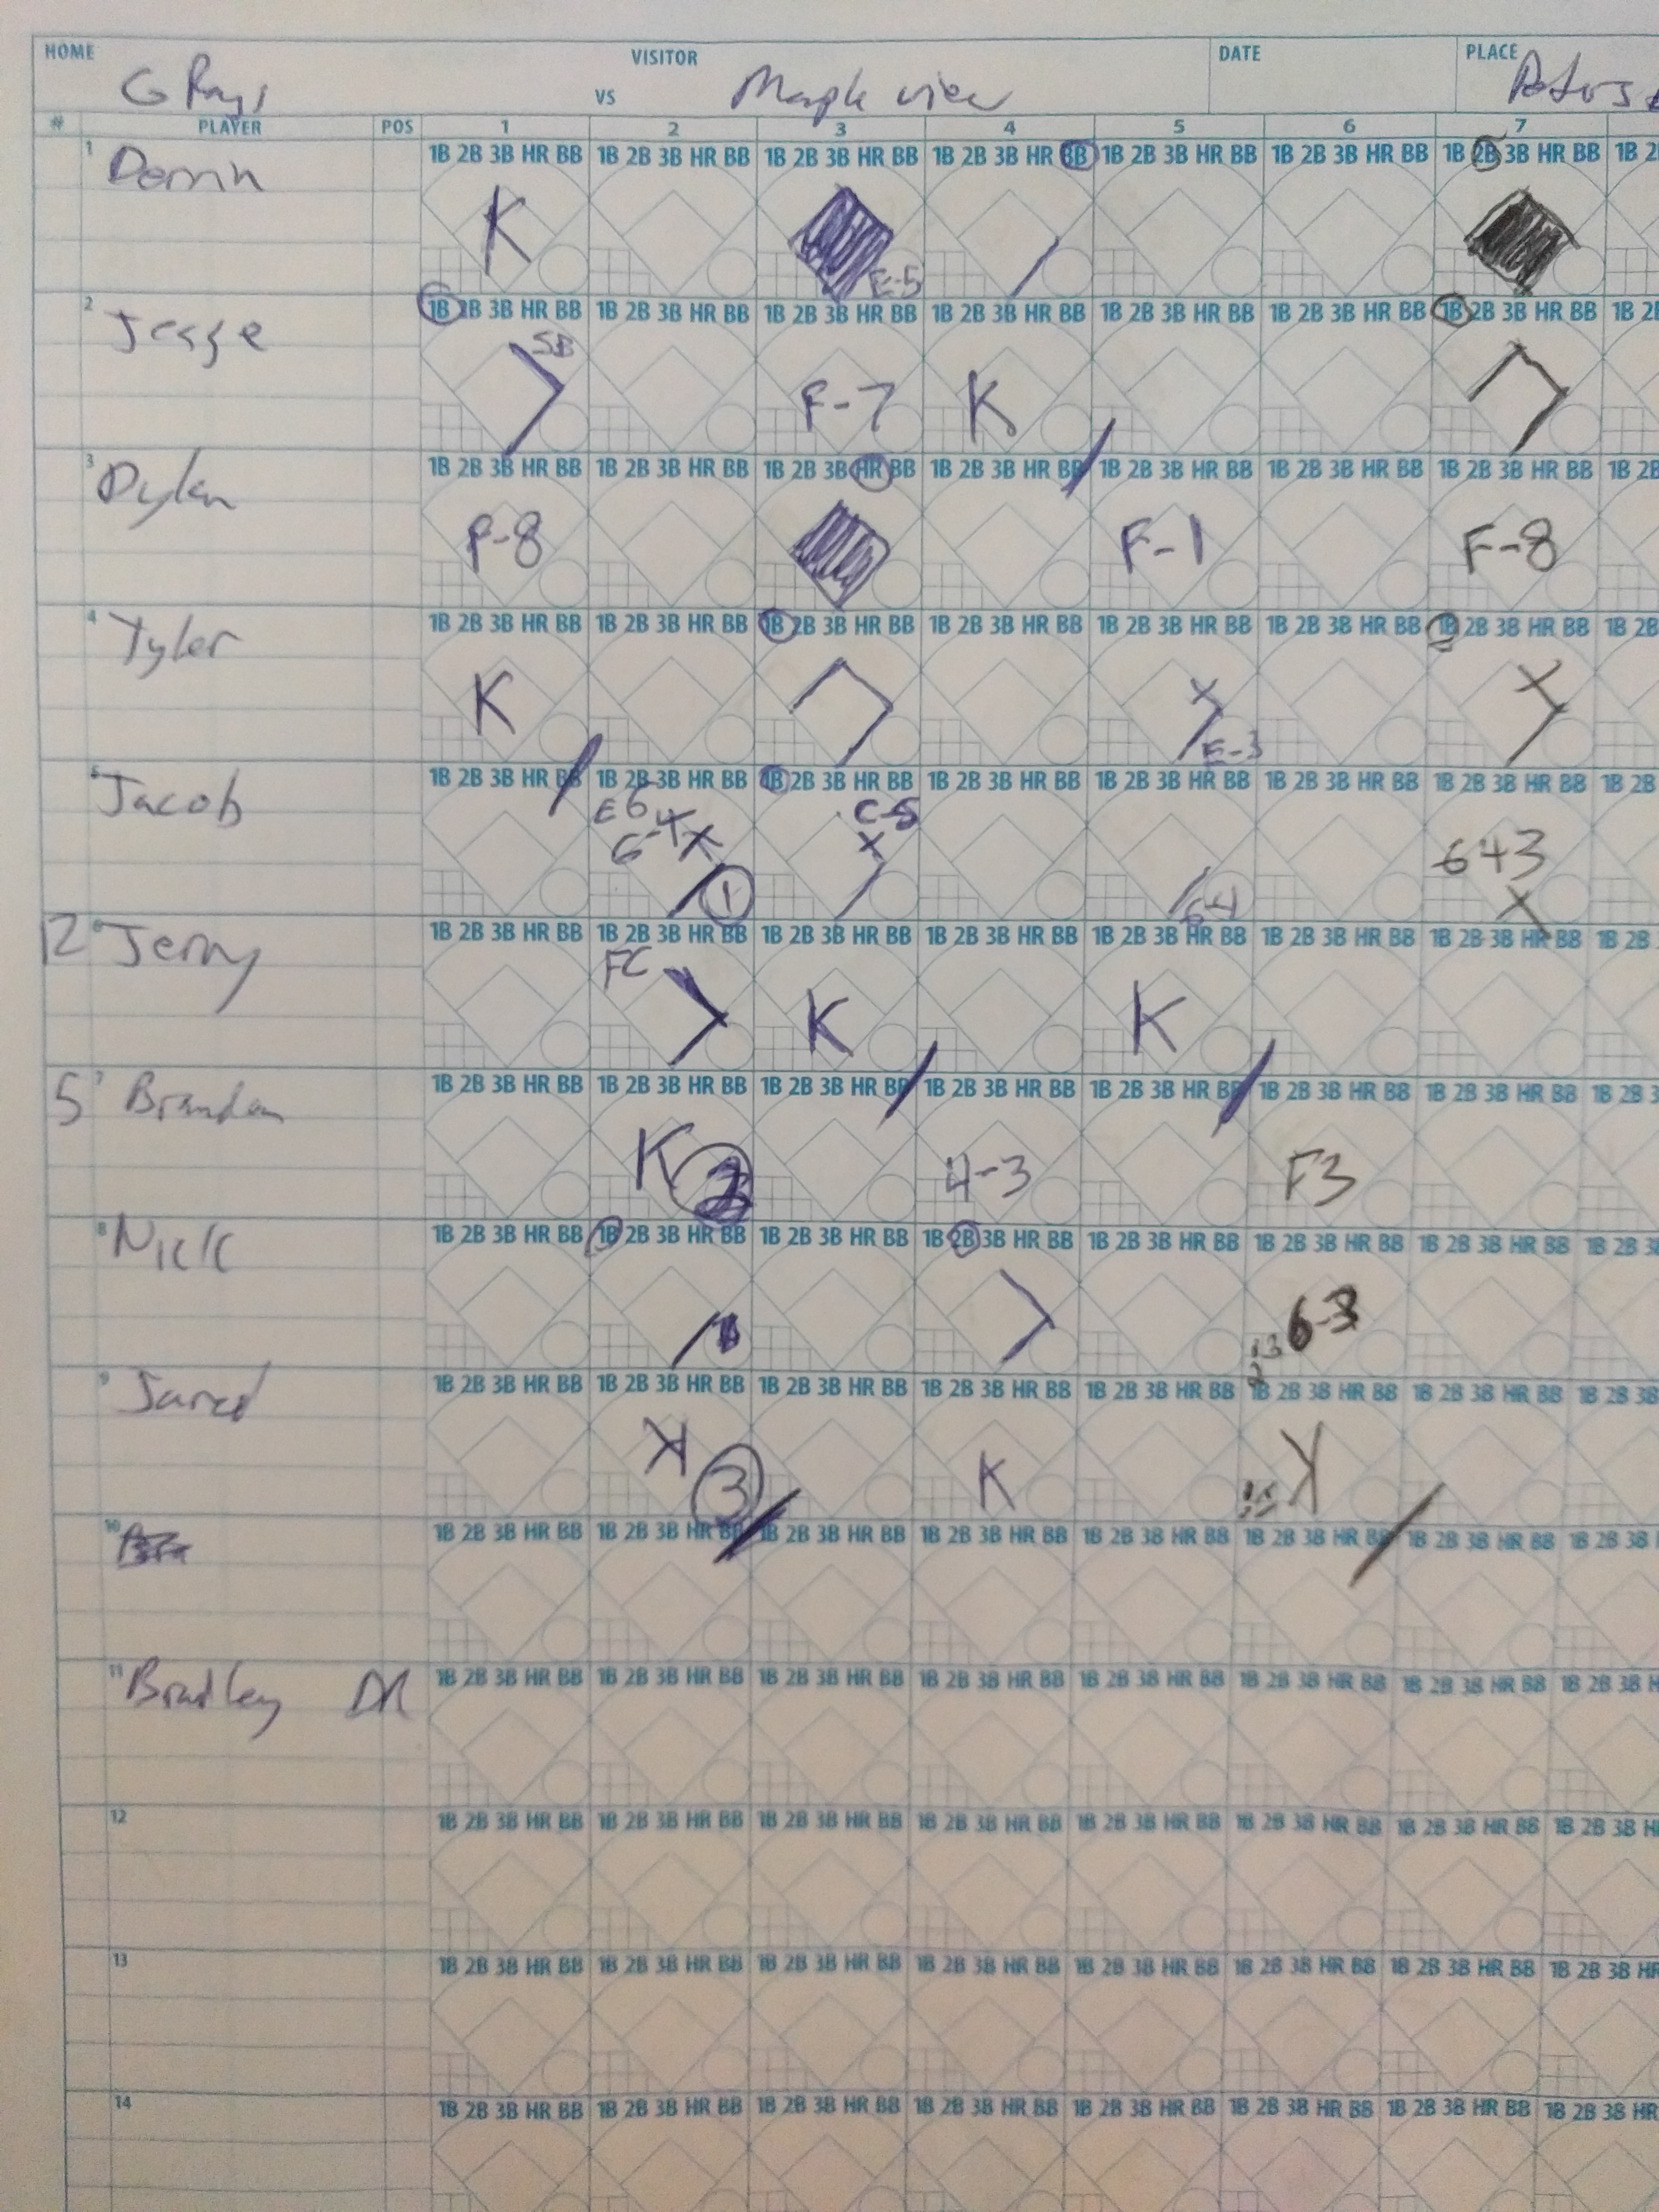 HOME VISITOR DATE PLACE
G Rays VS Maple view
# PLAYER POS 1 2 3 4 5 6 7
1 1B 2B 3B HR BB 1B 2B 3B HR BB 1B 2B 3B HR BB 1B 2B 3B HR BB 1B 2B 3B HR BB 1B 2B 3B HR BB 1B 2B 3B HR BB 1B 2
K E-5
2 Jesse 1B 2B 3B HR BB 1B 2B 3B HR BB 1B 2B 3B HR BB 1B 2B 3B HR BB 1B 2B 3B HR BB 1B 2B 3B HR BB 1B 2B 3B HR BB 1B 2B
SB F-7 K
3 Dylan 1B 2B 3B HR BB 1B 2B 3B HR BB 1B 2B 3B HR BB 1B 2B 3B HR BB 1B 2B 3B HR BB 1B 2B 3B HR BB 1B 2B 3B HR BB 1B 2B
F-8 F-1 F-8
4 Tyler 1B 2B 3B HR BB 1B 2B 3B HR BB 1B 2B 3B HR BB 1B 2B 3B HR BB 1B 2B 3B HR BB 1B 2B 3B HR BB 1B 2B 3B HR BB 1B 2B
K X E-3 X
5 Jacob 1B 2B 3B HR BB 1B 2B 3B HR BB 1B 2B 3B HR BB 1B 2B 3B HR BB 1B 2B 3B HR BB 1B 2B 3B HR BB 1B 2B 3B HR BB 1B 2B
E6 6-4 X 1 C-5 X 6-4 643 X
12 6 Jerry 1B 2B 3B HR BB 1B 2B 3B HR BB 1B 2B 3B HR BB 1B 2B 3B HR BB 1B 2B 3B HR BB 1B 2B 3B HR BB 1B 2B 3B HR BB 1B 2B
FC K K
5 7 Brandon 1B 2B 3B HR BB 1B 2B 3B HR BB 1B 2B 3B HR BB 1B 2B 3B HR BB 1B 2B 3B HR BB 1B 2B 3B HR BB 1B 2B 3B HR BB 1B 2B 3
K 2 4-3 F3
8 Nick 1B 2B 3B HR BB 1B 2B 3B HR BB 1B 2B 3B HR BB 1B 2B 3B HR BB 1B 2B 3B HR BB 1B 2B 3B HR BB 1B 2B 3B HR BB 1B 2B 3
6-3
9 Jared 1B 2B 3B HR BB 1B 2B 3B HR BB 1B 2B 3B HR BB 1B 2B 3B HR BB 1B 2B 3B HR BB 1B 2B 3B HR BB 1B 2B 3B HR BB 1B 2B 3B
K 3 K K
10 1B 2B 3B HR BB 1B 2B 3B HR BB 1B 2B 3B HR BB 1B 2B 3B HR BB 1B 2B 3B HR BB 1B 2B 3B HR BB 1B 2B 3B HR BB 1B 2B 3B
11 Bradley 1B 2B 3B HR BB 1B 2B 3B HR BB 1B 2B 3B HR BB 1B 2B 3B HR BB 1B 2B 3B HR BB 1B 2B 3B HR BB 1B 2B 3B HR BB 1B 2B 3B H
12 1B 2B 3B HR BB 1B 2B 3B HR BB 1B 2B 3B HR BB 1B 2B 3B HR BB 1B 2B 3B HR BB 1B 2B 3B HR BB 1B 2B 3B HR BB 1B 2B 3B H
13 1B 2B 3B HR BB 1B 2B 3B HR BB 1B 2B 3B HR BB 1B 2B 3B HR BB 1B 2B 3B HR BB 1B 2B 3B HR BB 1B 2B 3B HR BB 1B 2B 3B HR
14 1B 2B 3B HR BB 1B 2B 3B HR BB 1B 2B 3B HR BB 1B 2B 3B HR BB 1B 2B 3B HR BB 1B 2B 3B HR BB 1B 2B 3B HR BB 1B 2B 3B HR